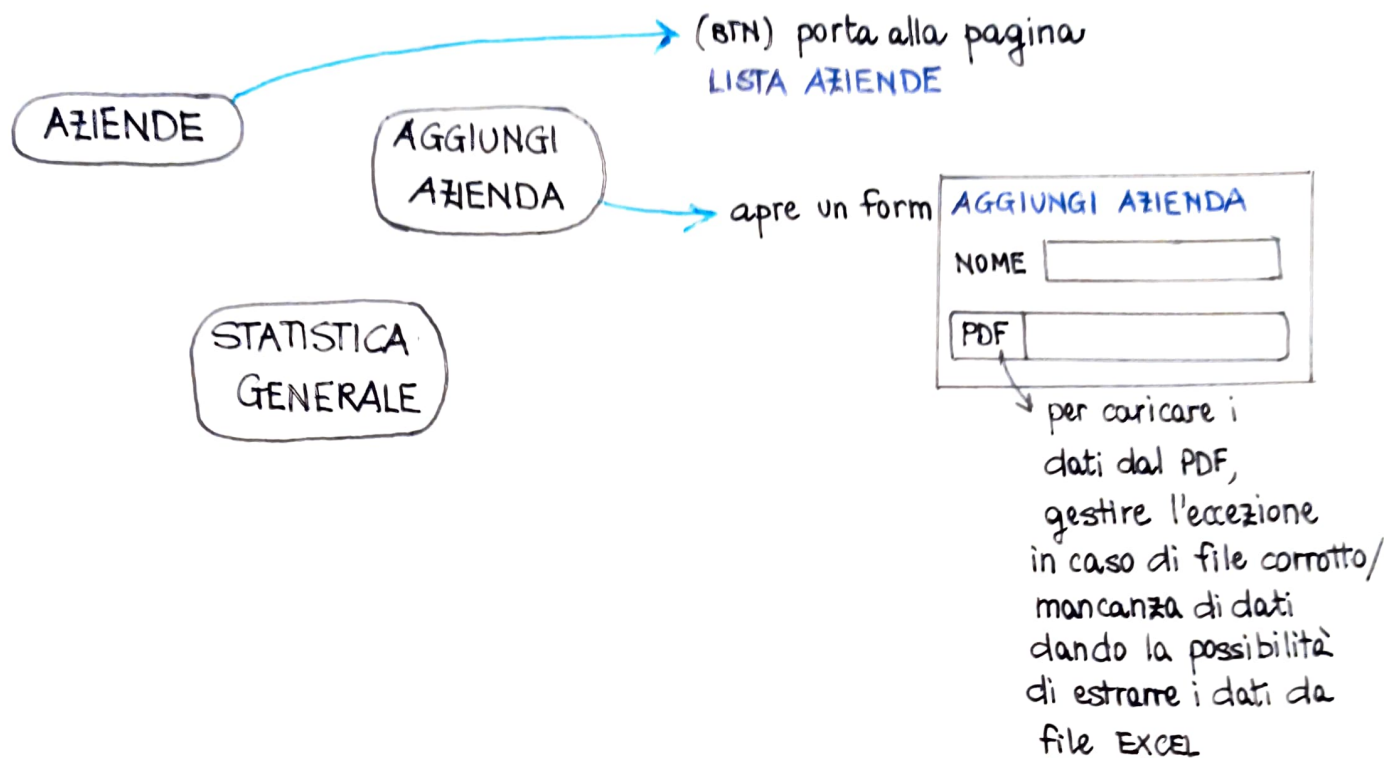 (BTN) porta alla pagina
LISTA AZIENDE
AZIENDE
AGGIUNGI
AZIENDA
apre un form
AGGIUNGI AZIENDA
NOME
PDF
STATISTICA
GENERALE
per caricare i
dati dal PDF,
gestire l'eccezione
in caso di file corrotto/
mancanza di dati
dando la possibilità
di estrarre i dati da
file EXCEL